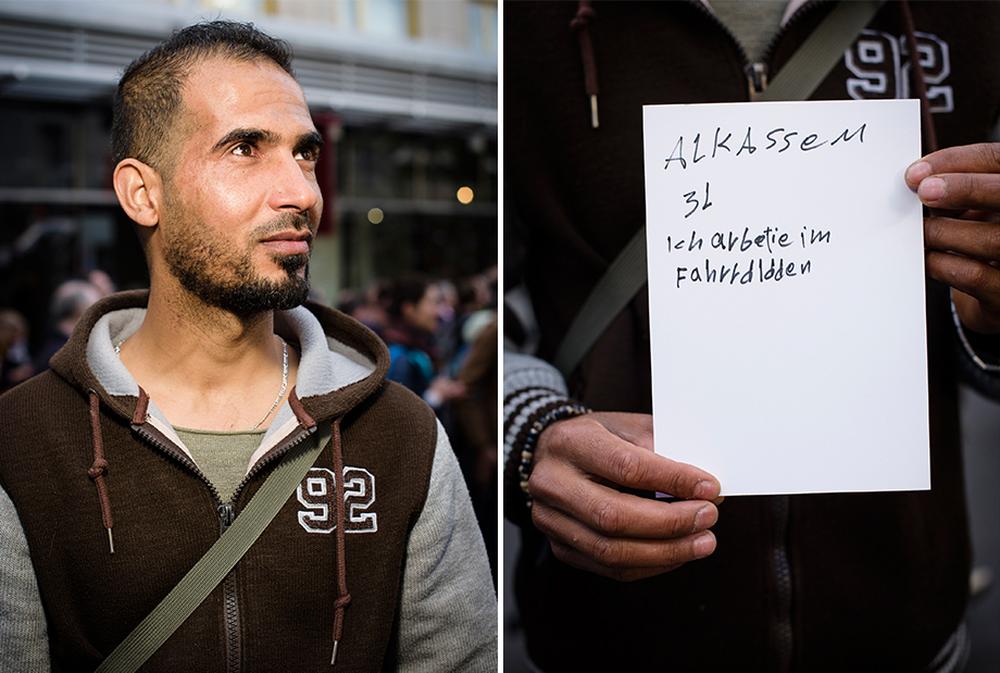 92
92
ALKASSEM
31
Ich arbetie im
Fahrrdldden